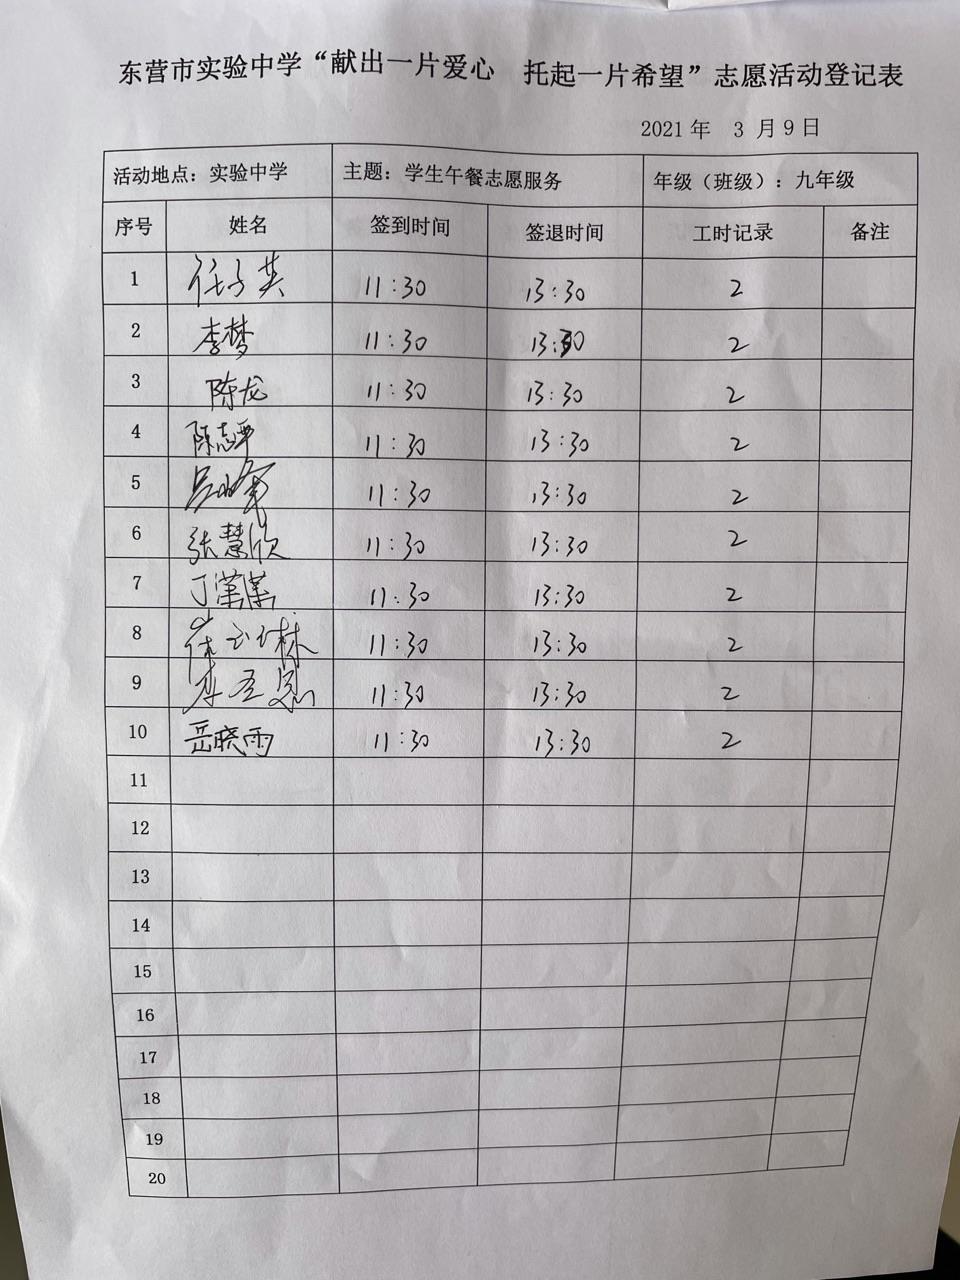 东营市实验中学“献出一片爱心 托起一片希望”志愿活动登记表
2021年 3月9日
活动地点：实验中学 主题：学生午餐志愿服务 年级（班级）：九年级
序号 姓名 签到时间 签退时间 工时记录 备注
1 任子英 11:30 13:30 2
2 李梦 11:30 13:30 2
3 陈龙 11:30 13:30 2
4 陈志平 11:30 13:30 2
5 11:30 13:30 2
6 张慧欣 11:30 13:30 2
7 丁潇潇 11:30 13:30 2
8 崔玉林 11:30 13:30 2
9 11:30 13:30 2
10 岳晓雨 11:30 13:30 2
11
12
13
14
15
16
17
18
19
20